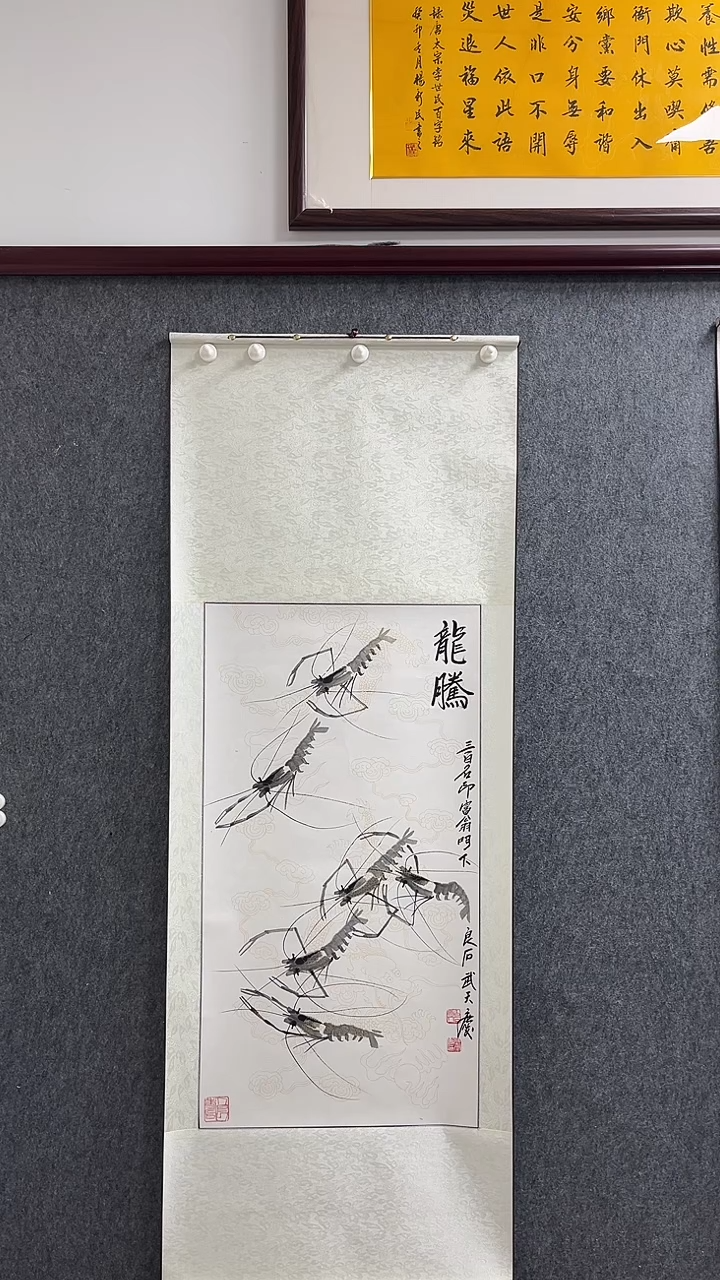 養性需修善
欺心莫喫齋
衙門休出入
鄉黨要和諧
安分身無辱
是非口不開
世人依此語
災退福星來
錄唐太宗李世民百字銘
癸卯年月楊新民書
龍騰
三百石印富翁門下
良石 武天慶